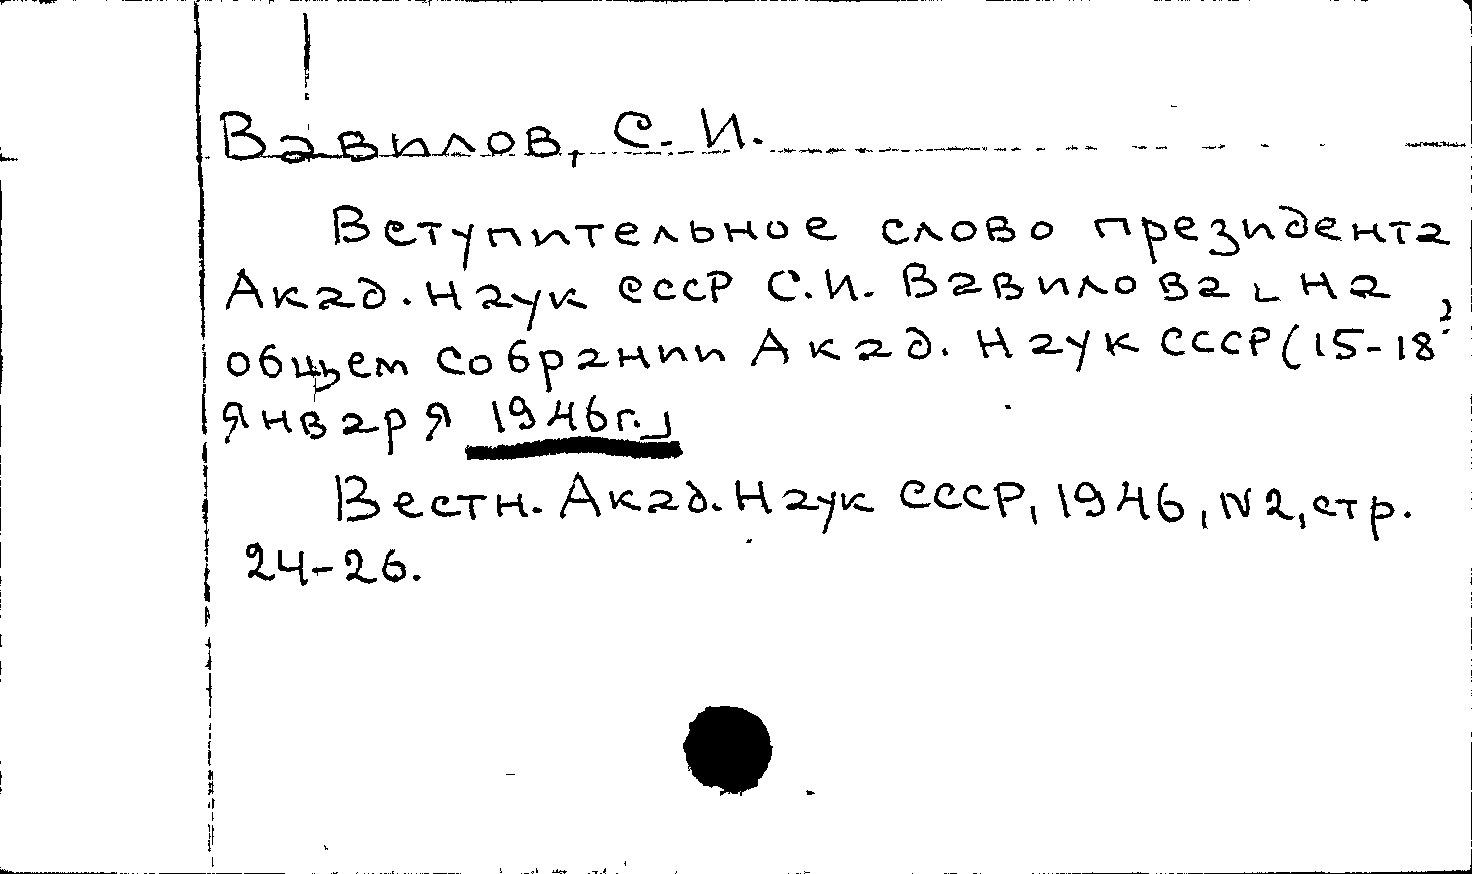 Вавилов, С. И.
Вступительное слово президента
Акад. Наук СССР С.И. Вавилова ∟ на
общем собрании Акад. Наук СССР (15-18 ?
января 1946г.┘
Вестн. Акад. Наук СССР, 1946, N2, стр.
24-26.